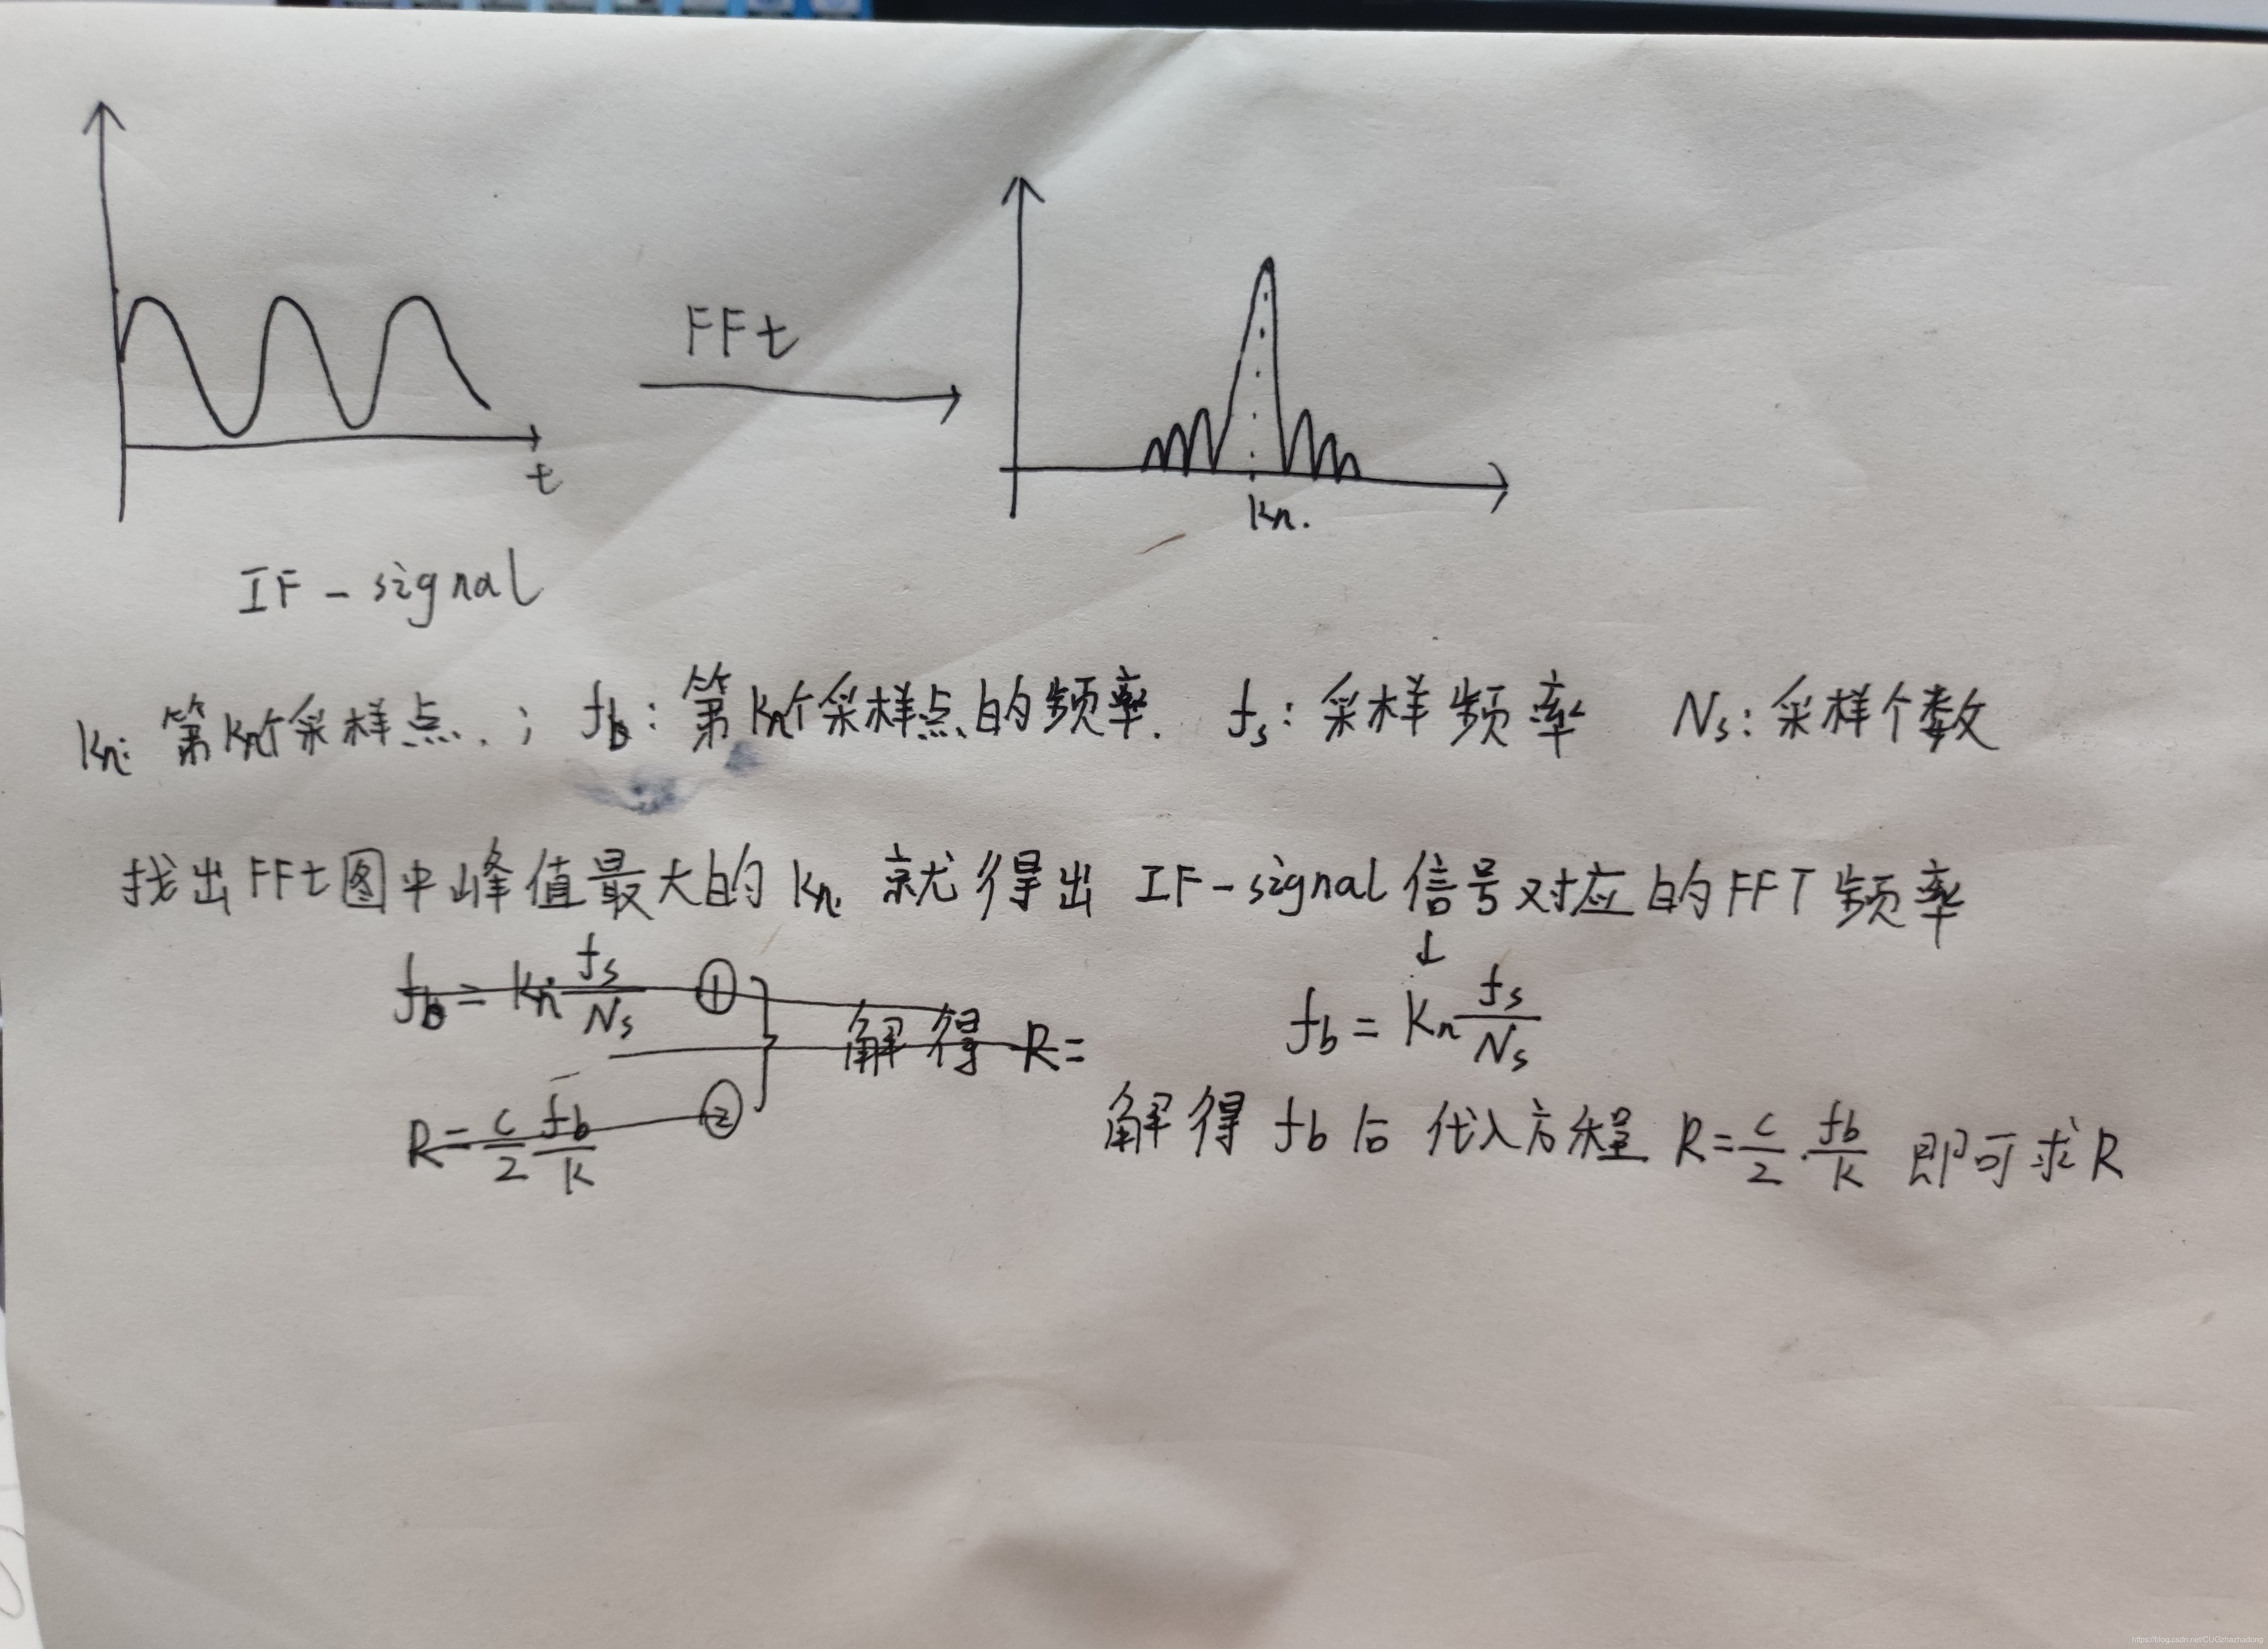 FFt
t
kn.
IF-signal
kn: 第kn个采样点.; fb: 第kn个采样点的频率. fs: 采样频率 Ns: 采样个数
找出FFt图中峰值最大的kn 就得出 IF-signal信号对应的FFT频率
↓
fb = kn fs/Ns ① 解得 R=
fb = kn fs/Ns
R = c/2 fb/k ②
解得 fb 后 代入方程 R = c/2 · fb/k 即可求R